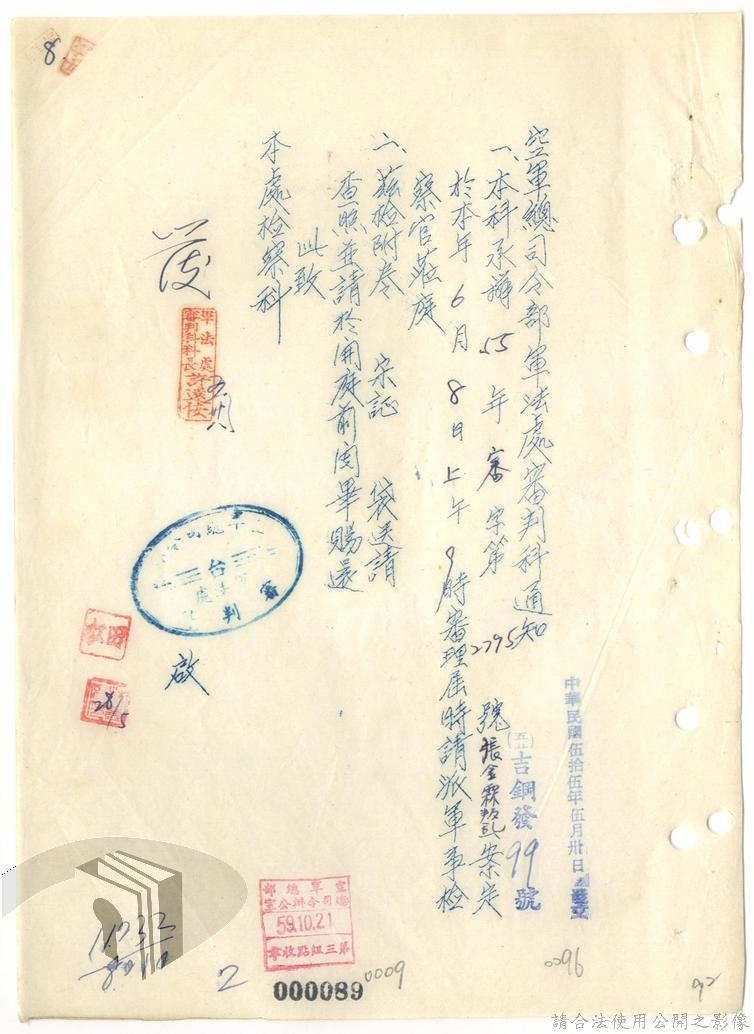 空軍總司令部軍法處審判科通知
中華民國伍拾伍年伍月卅日發文
(五五)吉鋼發99號
一、本科承辦55年審字第2795號張金霖叛亂案定
於本年6月8日上午9時審理屆時請派軍事檢
察官蒞庭
二、茲檢附卷 宗証 袋送請
查照並請於開庭前閱畢賜還
此致
本處檢察科
軍法處
審判科科長許遠俊
審判
啟
28/5
空軍總部
總司令辦公室
59.10.21
第三組點收章
8
2
000089
0009
0096
92
請合法使用公開之影像